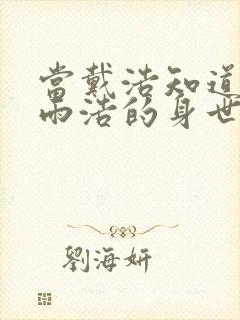 當戴浩知道
雨浩的身世
劉海妍